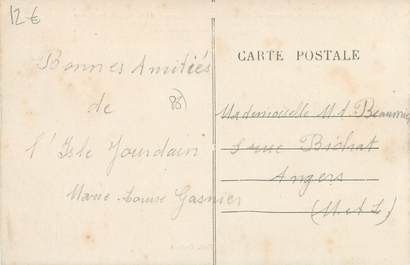 12€
Bonnes Amitiés
de
l'Isle Jourdain
Marie-Louise Gasnier
86
CARTE POSTALE
Mademoiselle M L
rue Bichat
Angers
(M. & L.)